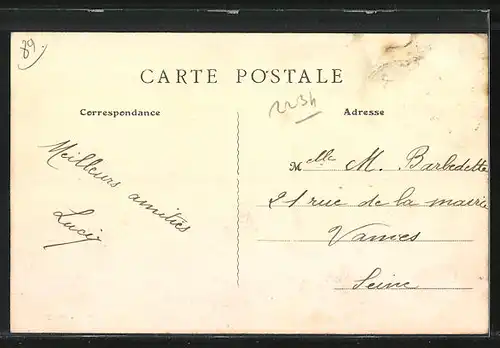 89.
CARTE POSTALE
Correspondance
Adresse
223h
Meilleurs amitiés
Lucie
Melle M. Barbedette
21 rue de la mairie
Vanves
Seine